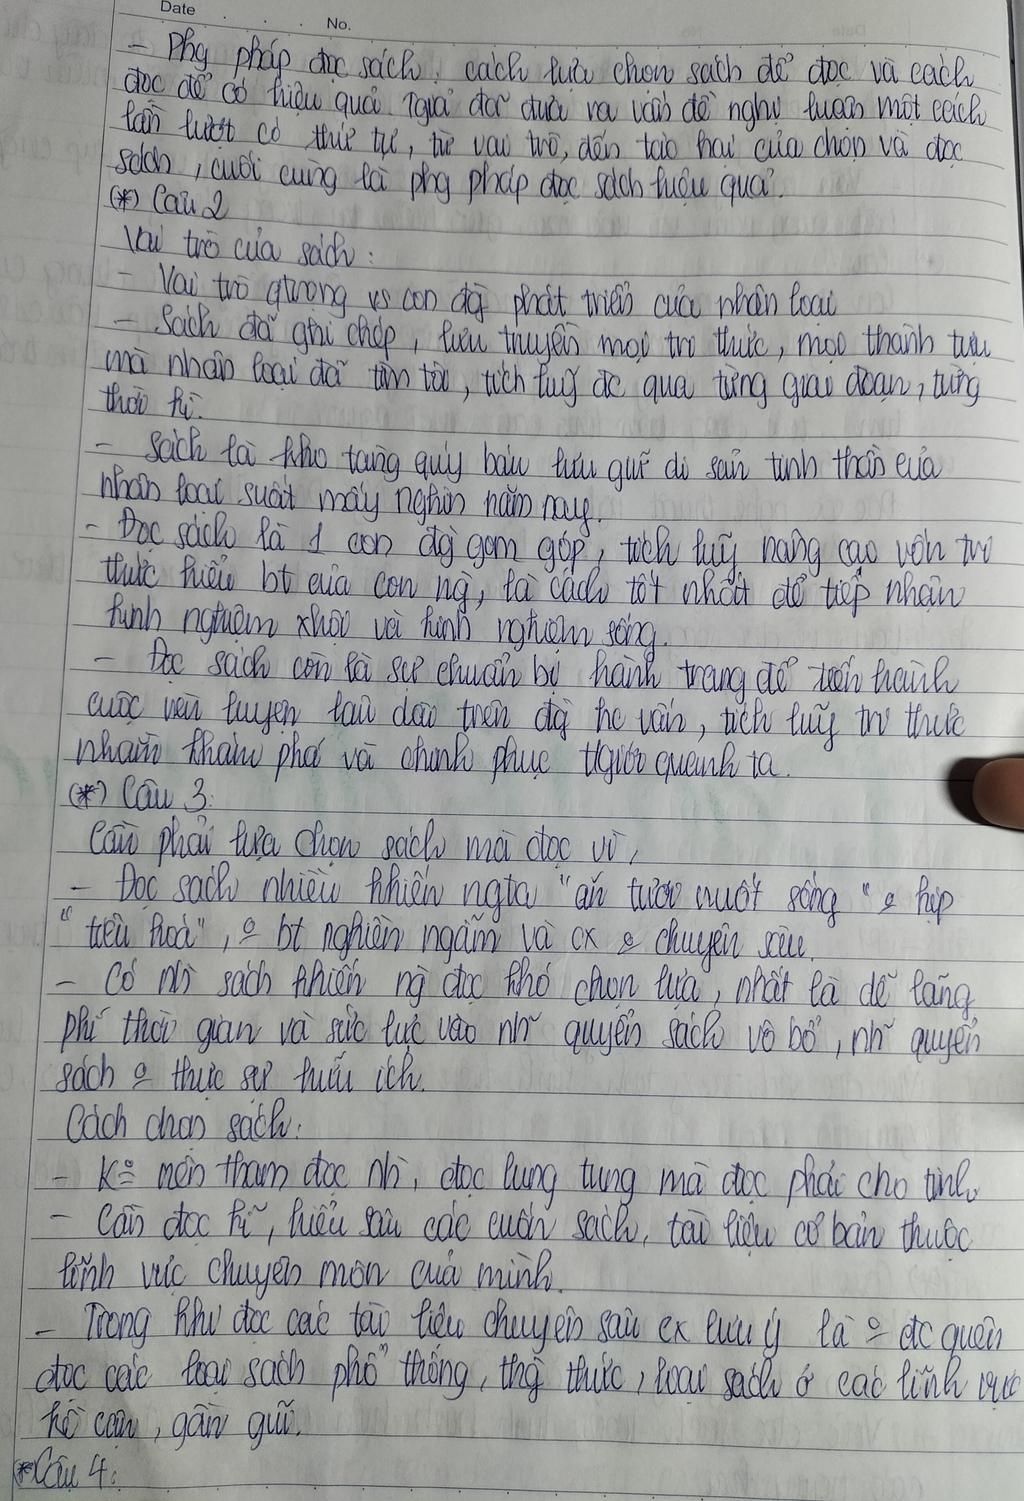 Date No.
- Phg pháp đọc sách: cách lựa chọn sách để đọc và cách
đọc để có hiệu quả. Tgiả đã đưa ra vấn đề nghị luận một cách
lần lượt có thứ tự, từ vai trò, đến tác hại của chọn và đọc
sách, cuối cùng là phg pháp đọc sách hiệu quả.
(*) Câu 2
Vai trò của sách:
- Vai trò qtrọng vs con đg phát triển của nhân loại
- Sách đã ghi chép, lưu truyền mọi tri thức, mọi thành tựu
mà nhân loại đã tìm tòi, tích luỹ đc qua từng giai đoạn, từng
thời kì.
- Sách là kho tàng quý báu lưu giữ di sản tinh thần của
nhân loại suốt mấy nghìn năm nay.
- Đọc sách là 1 con đg gom góp, tích luỹ nâng cao vốn tri
thức hiểu bt của con ng, là cách tốt nhất để tiếp nhận
kinh nghiệm xhội và kinh nghiệm sống.
- Đọc sách còn là sự chuẩn bị hành trang để tiến hành
cuộc rèn luyện lâu dài trên đg hc vấn, tích luỹ tri thức
nhằm khám phá và chinh phục tgiới quanh ta.
(*) Câu 3:
Cần phải lựa chọn sách mà đọc vì,
- Đọc sách nhiều khiến ngta "ăn tươi nuốt sống" o kịp
"tiêu hoá", o bt nghiền ngẫm và cx o chuyên sâu.
- Có nh` sách khiến ng đọc khó chọn lựa, nhất là dễ lãng
phí thời gian và sức lực vào nh~ quyển sách vô bổ, nh~ quyển
sách o thực sự hữu ích.
Cách chọn sách:
- K° nên tham đọc nh`, đọc lung tung mà đọc phải cho tinh
- Cần đọc kĩ, hiểu sâu các cuốn sách, tài liệu cơ bản thuộc
lĩnh vực chuyên môn của mình.
- Trong khi đọc các tài liệu chuyên sâu cx lưu ý là o đc quên
đọc các loại sách phổ thông, thg thức, loại sách ở các lĩnh vực
kề cận, gần gũi.
* Câu 4: